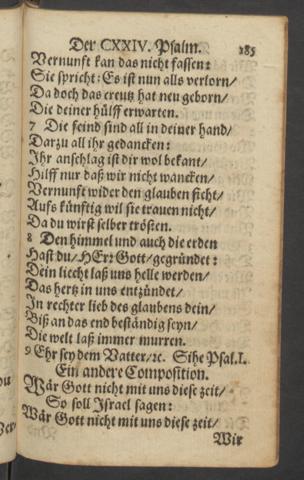 Der CXXIV. Psalm. 285
Vernunft kan das nicht fassen:
Sie spricht: Es ist nun alls verlorn/
Da doch das creutz hat neu geborn/
Die deiner hülff erwarten.
7 Die feind sind all in deiner hand/
Darzu all ihr gedancken:
Ihr anschlag ist dir wol bekant/
Hilff nur daß wir nicht wancken/
Vernunft wider den glauben ficht/
Aufs künftig wil sie trauen nicht/
Da du wirst selber trösten.
8 Den himmel und auch die erden
Hast du/ HErr Gott/ gegründet:
Dein liecht laß uns helle werden/
Das hertz in uns entzündet/
In rechter lieb des glaubens dein/
Biß an das end beständig seyn/
Die welt laß immer murren.
9 Ehr sey dem Vatter/ ꝛc. Sihe Psal. I.
Ein andere Composition.
Wär Gott nicht mit uns diese zeit/
So soll Israel sagen:
Wär Gott nicht mit uns diese zeit/
Wir